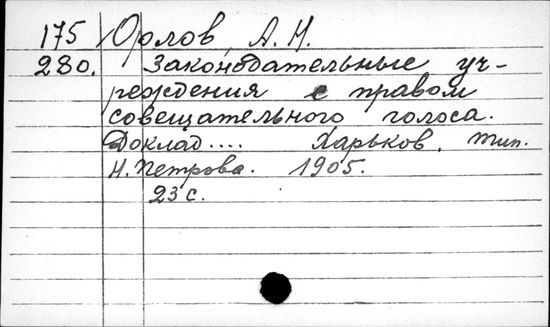 175 Орлов А. Н.
280. Законодательные уч-
реждения с правом
совещательного голоса.
Доклад.... Харьков, тип.
Н. Петрова. 1905.
23 с.